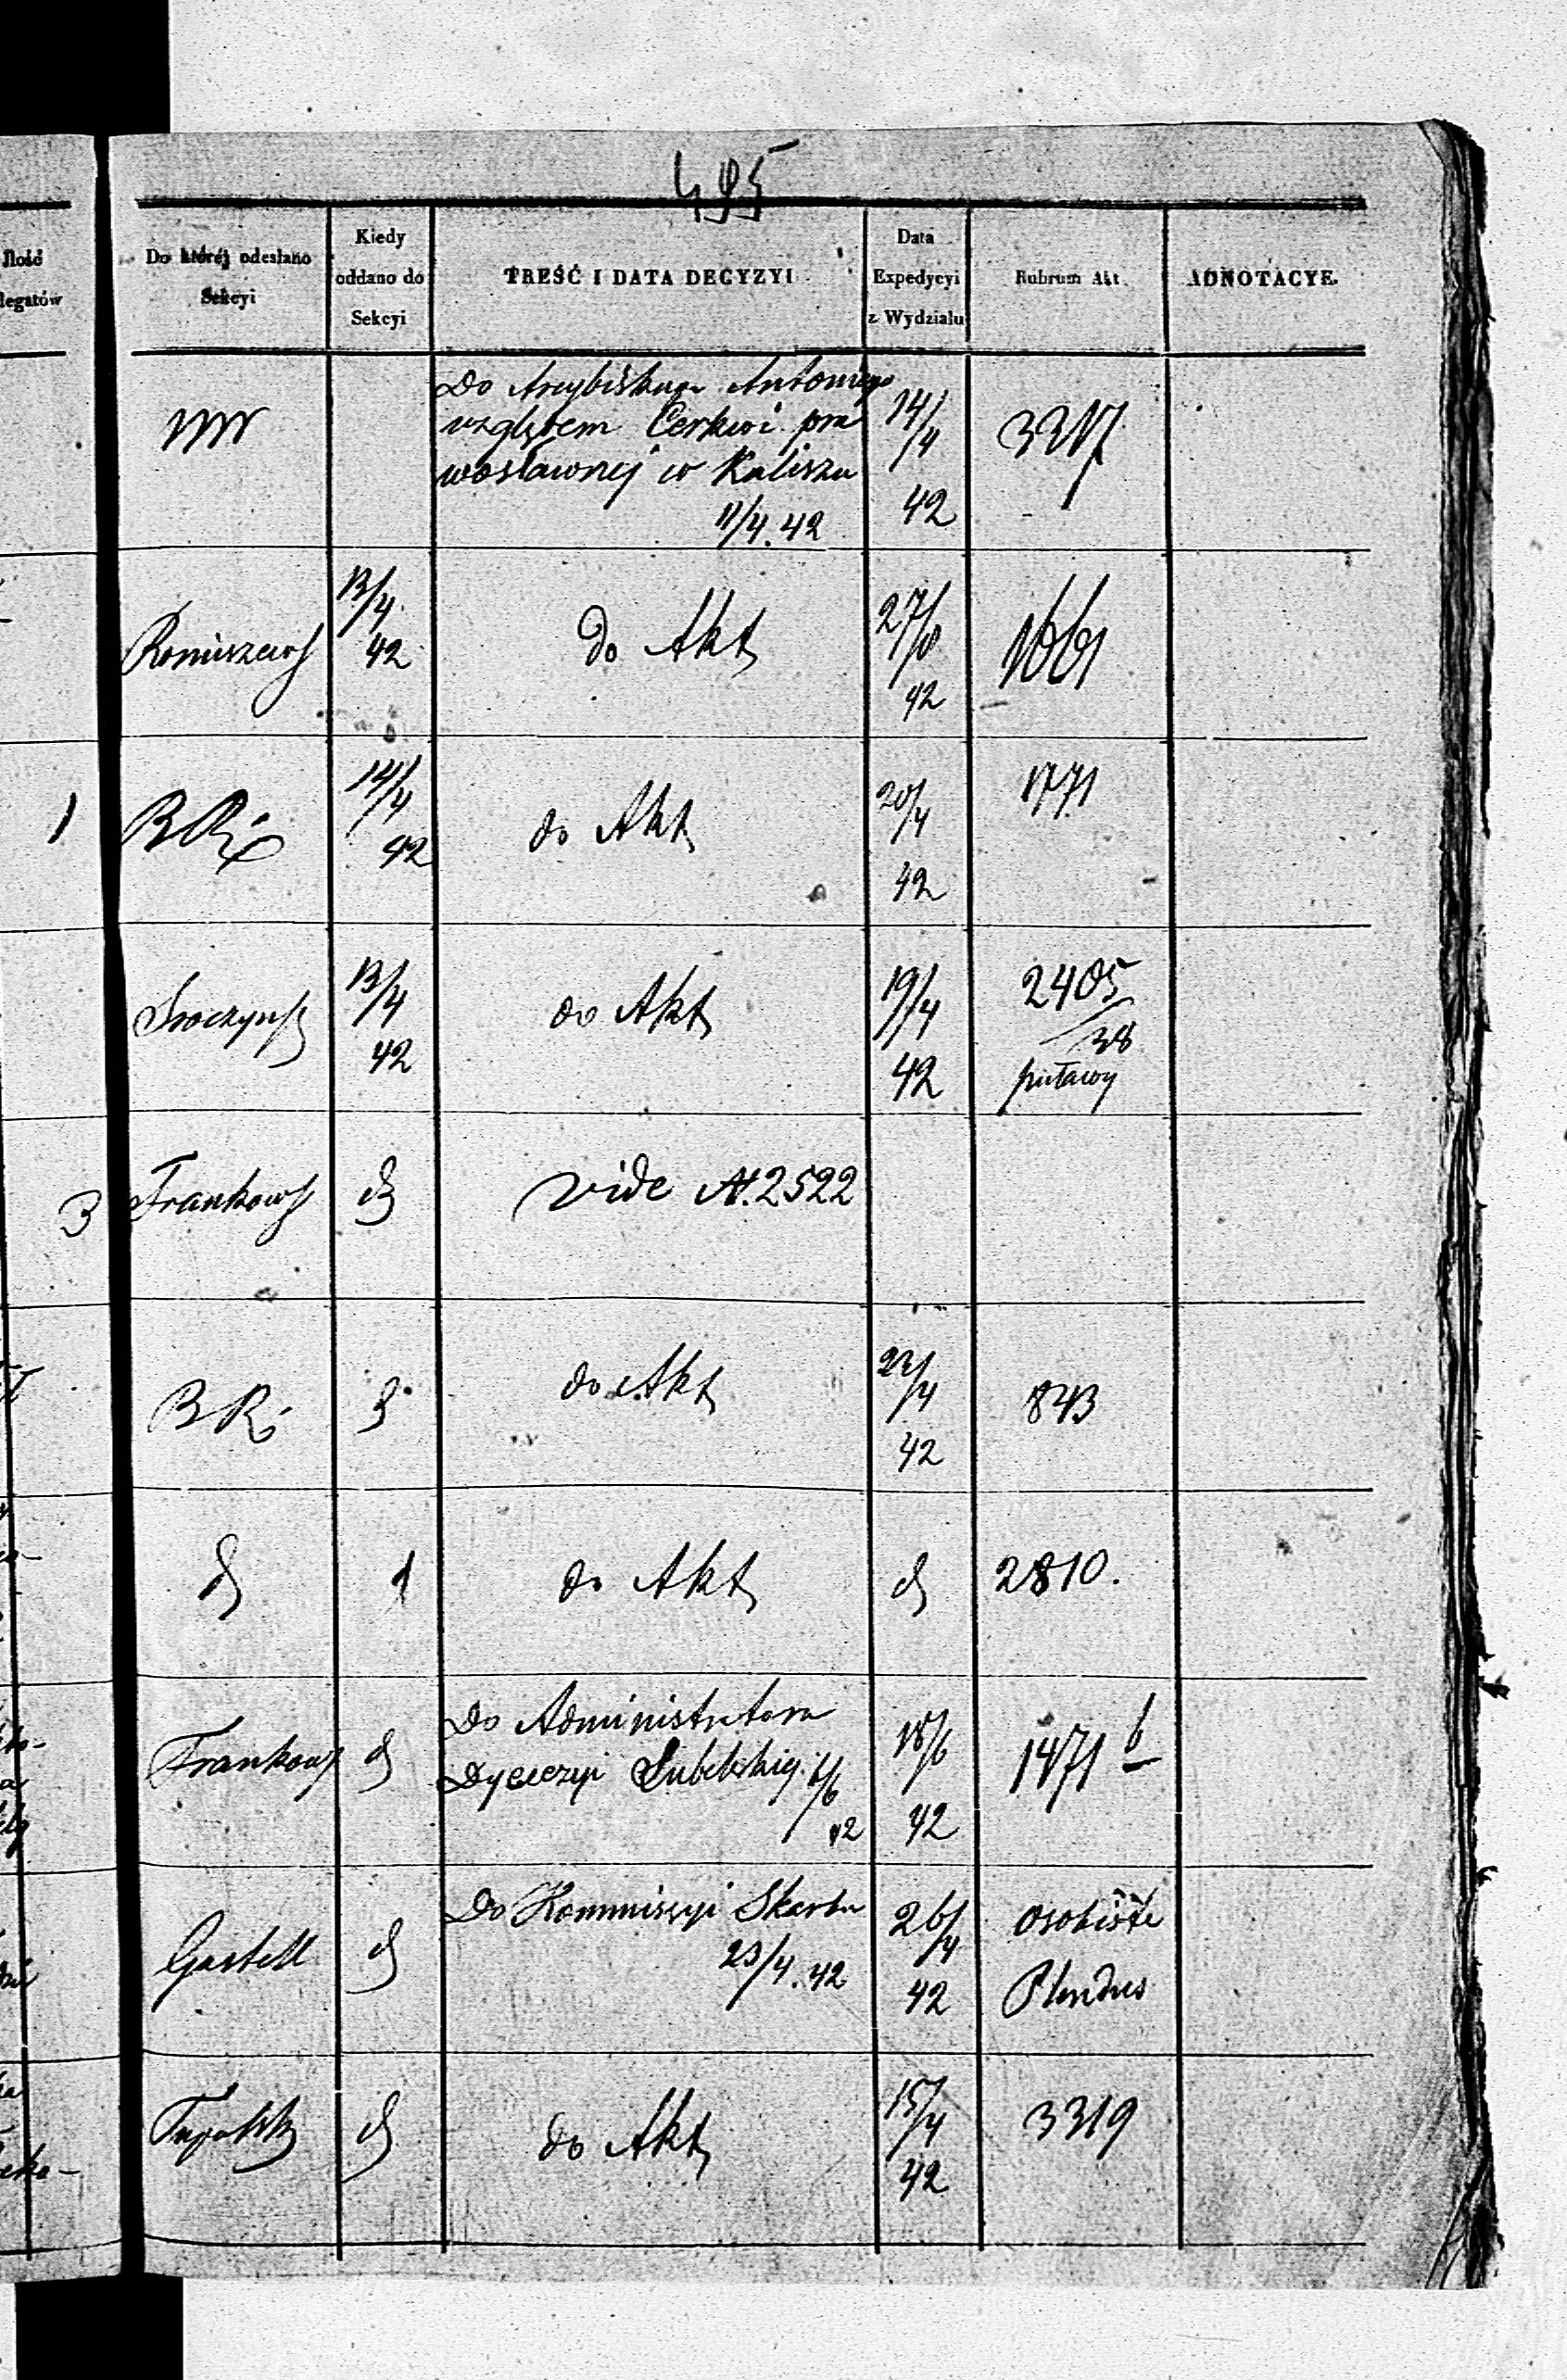 495
Ilość
legatów
Do której odesłano
Sekcyi
Kiedy
oddano do
Sekcyi
TREŚĆ I DATA DECYZYI
Data
Expedycyi
z Wydziału
Rubrum Akt
ADNOTACYE.
Do Arcybiskupa Antoniego
względem Cerkwi pra
wosławnej w Kaliszu
11/4.42
14/4
42
3317
13/4
42
do Akt
42
1661
1
14/4
42
do Akt
20/4
42
1771
13/4
42
do Akt
19/4
42
2405
/38
puławy
3
Frankows
vide N.2522
B R
do Akt
22/4
42
843
do Akt
2810.
Frankows
Do Administratora
Dyecezyi Lubelskiej 6/6
42
18/6
42
1471 b
Gastell
Do Kommissyi Skarbu
23/4.42
26/4
42
osobiste
do Akt
15/4
42
3319